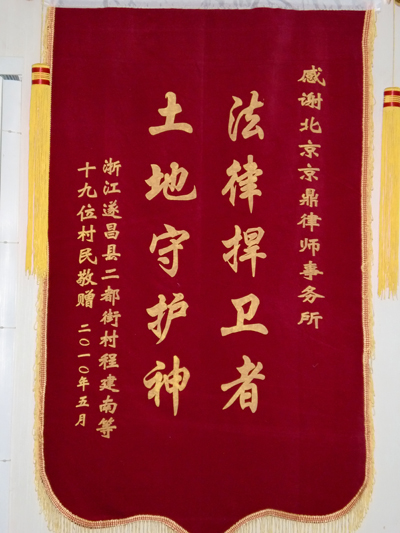 感谢北京京鼎律师事务所
法律捍卫者
土地守护神
浙江遂昌县二都街村程建南等
十九位村民敬赠 二〇一〇年五月